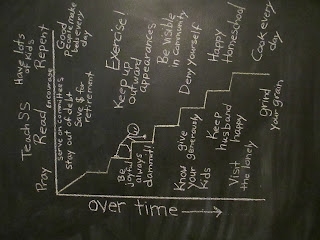 Pray
Teach SS
Read
encourage
Have lots
of kids
Repent
serve on committees
stay out of debt
Save $ for
retirement
Good
people
feel every
day
Exercise!
Keep up
outward
appearances
Be visible
in community
Deny yourself
Happy
Homeschool
Cook every
day
Be
joyful
always
dammit!
Know
your
kids
give
generously
Visit
the lonely
Keep
husband
happy
grind
your grain
over time